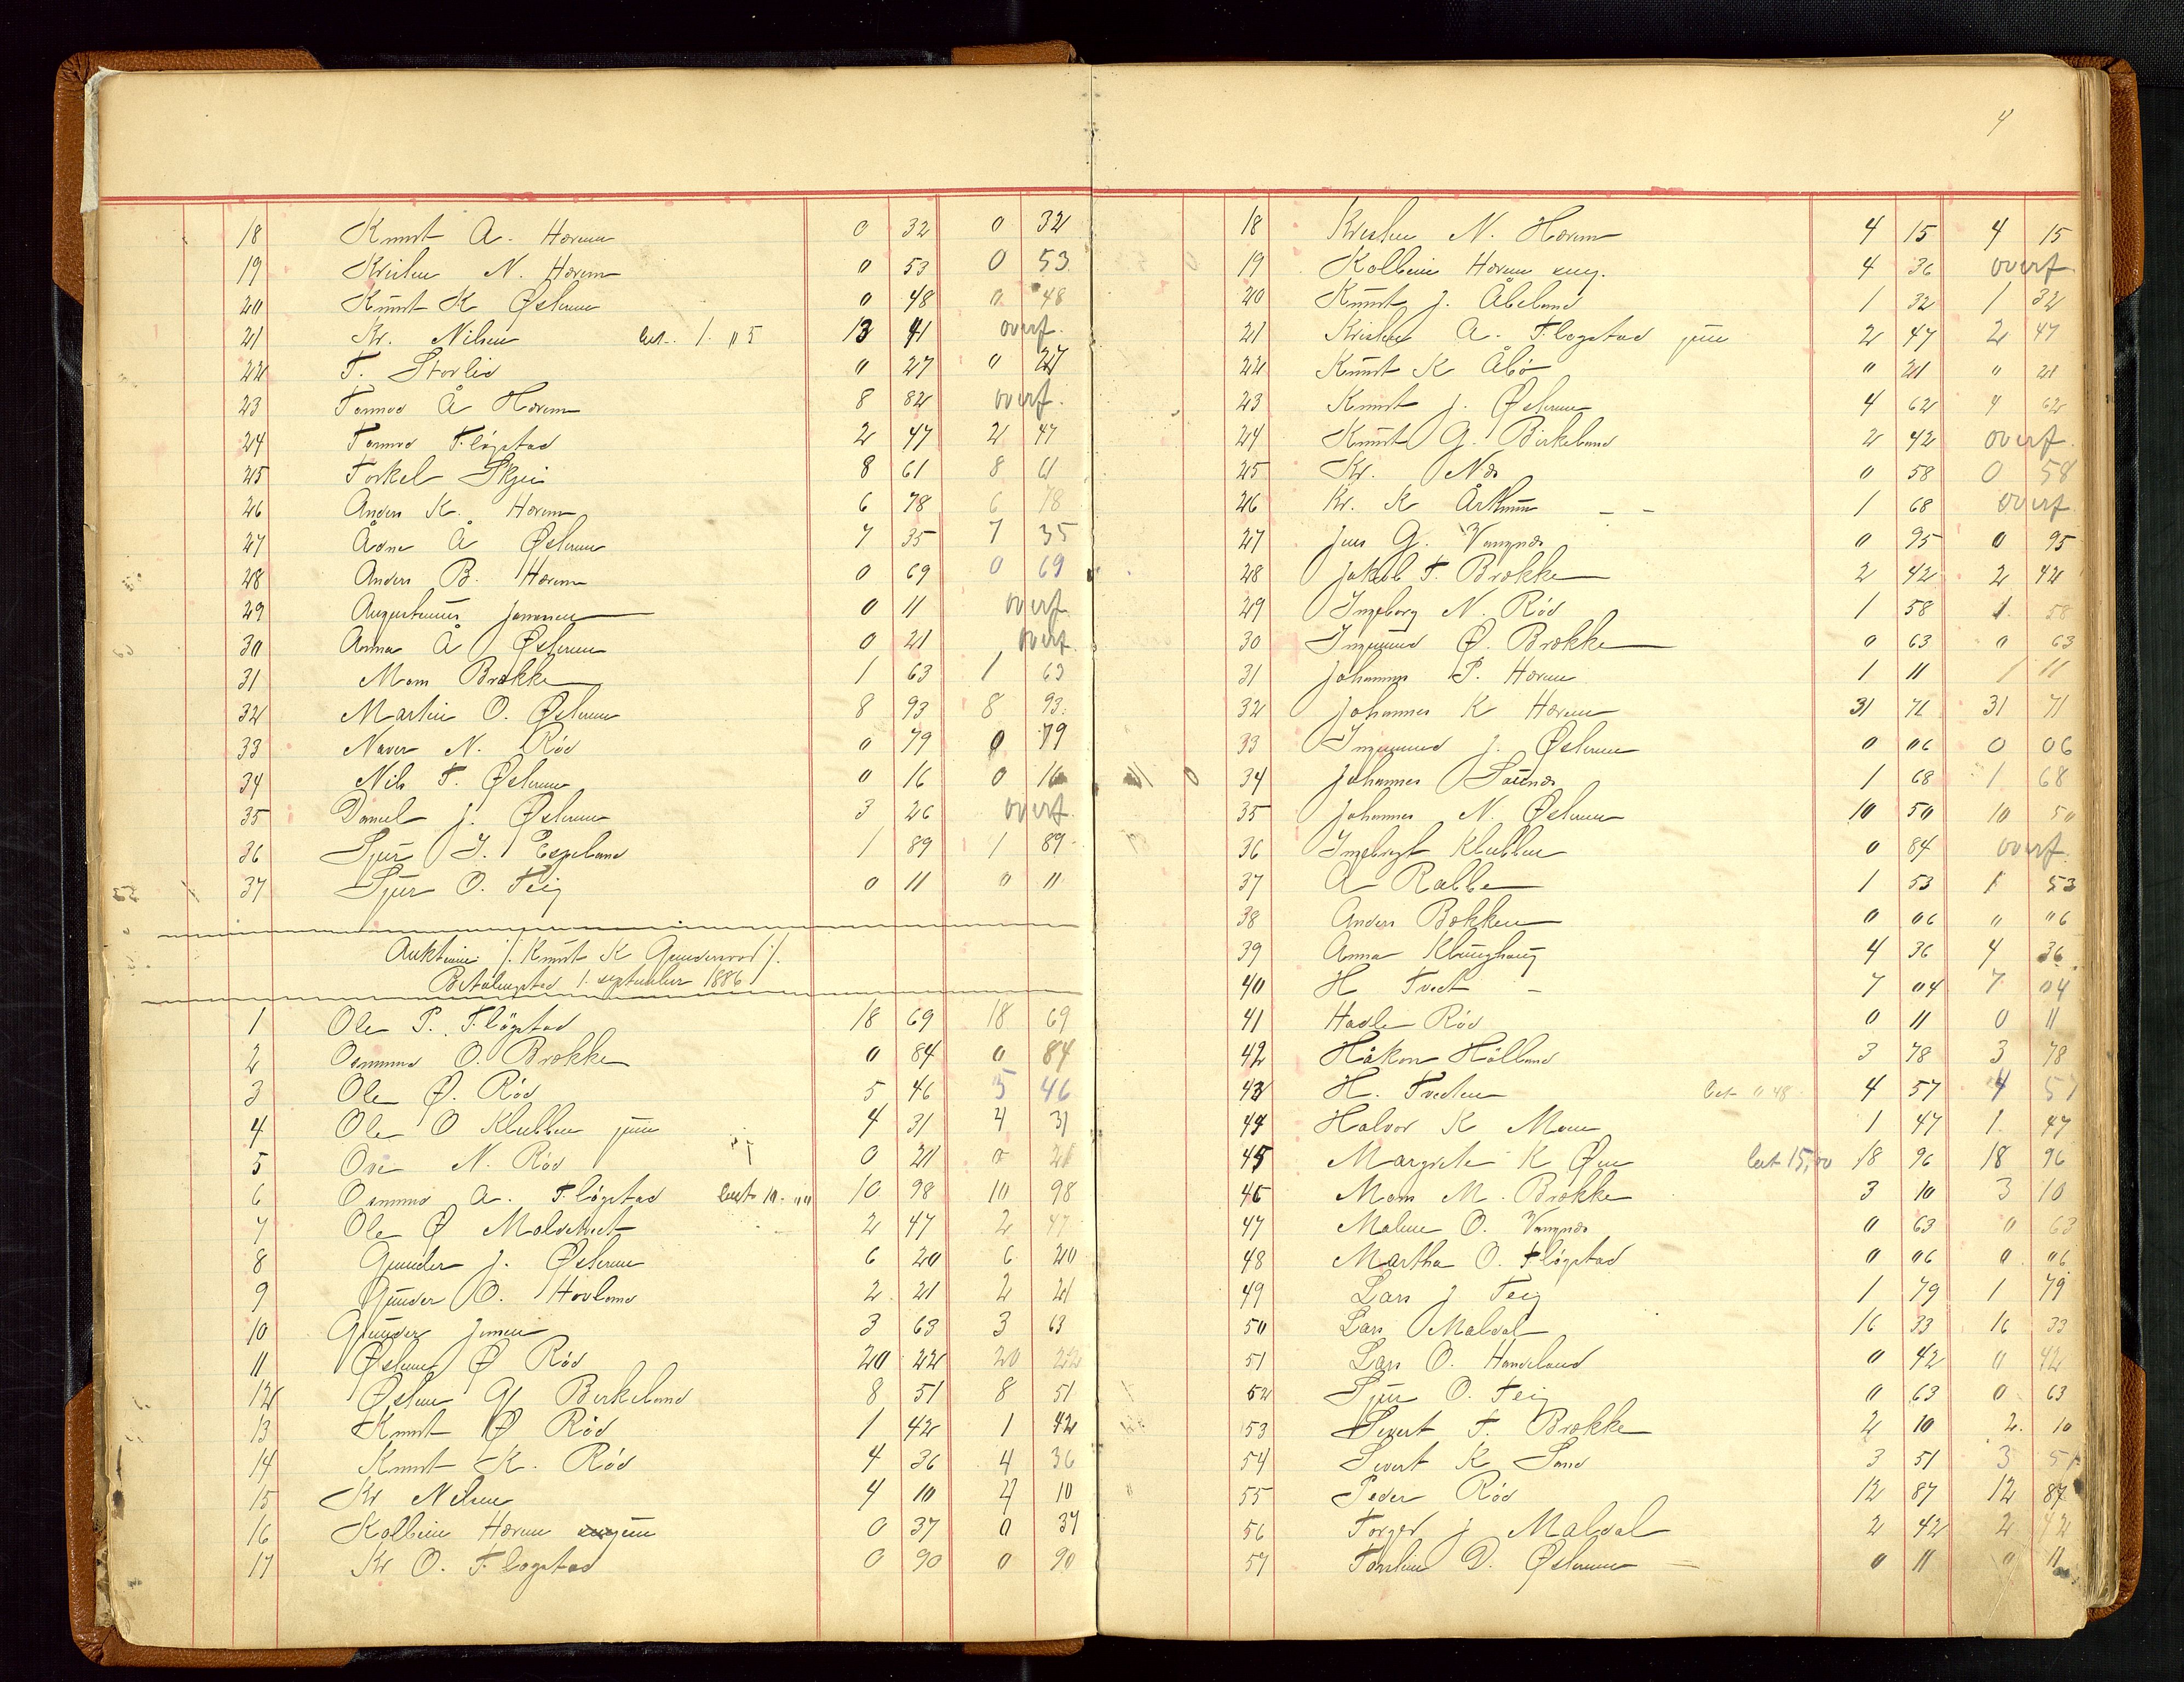 18 Knut A. Hærem 0 32 0 32
19 Kristen N. Hærem 0 53 0 53
20 Knut K Østrem 0 48 0 48
21 Kr. Nilsen bet. 1. 05 13 41 overf.
22 T. Storlid 0 27 0 27
23 Tormod Å Hærem 8 82 overf.
24 Tormod Fløgstad 2 47 2 47
25 Torkel Skjei 8 61 8 61
26 Anders K. Hærem 6 78 6 78
27 Ådne Å Østrem 7 35 7 35
28 Anders B. Hærem 0 69 0 69
29 Augustinus 0 11 overf.
30 Anna Å Østrem 0 21 overf.
31 Mons Brække 1 63 1 63
32 Martin O. Østrem 8 93 8 93
33 N. Rød 0 79 0 79
34 Nils T. Østrem 0 16 0 16
35 Daniel J. Østrem 3 26 overf.
36 Sjur I. Espeland 1 89 1 89
37 Sjur O. Teig 0 11 0 11
Auktion /: Knut K Gundersrød :/
Betalingstid 1. september 1886
1 Ole P. Fløgstad 18 69 18 69
2 Osmund O. Brække 0 84 0 84
3 Ole Ø. Rød 5 46 5 46
4 Ole O Klubben jun 4 31 4 31
5 N. Rød 0 21 0 21
6 Osmund A. Fløgstad bet 10. 00 10 98 10 98
7 Ole Ø 2 47 2 47
8 Gunder J. Østrem 6 20 6 20
9 Gunder O. Hovland 2 21 2 21
10 Gunder Jensen 3 63 3 63
11 Østen Ø Rød 20 22 20 22
12 Østen G Birkeland 8 51 8 51
13 Knut Ø Rød 1 42 1 42
14 Knut K. Rød 4 36 4 36
15 Kr Nilsen 4 10 4 10
16 Kolbein Hærem jun 0 37 0 37
17 Kr O. Fløgstad 0 90 0 90
4
18 Kristen N. Hærem 4 15 4 15
19 Kolbein Hærem 4 36 overf
20 Knut J. Åbeland 1 32 1 32
21 Kristen A. Fløgstad jun 2 47 2 47
22 Knut K Åbø 0 21 0 21
23 Knut J. Østrem 4 62 4 62
24 Knut G. Birkeland 2 42 overf.
25 Kr. Næs 0 58 0 58
26 Kr. K 1 68 overf
27 Jens G. Vangnæs 0 95 0 95
28 Jakob T. Brække 2 42 2 42
29 Ingeborg N. Rød 1 58 1 58
30 Ingmund Ø. Brække 0 63 0 63
31 Johannes P. Hærem 1 11 1 11
32 Johannes K Hærem 31 71 31 71
33 Ingmund J. Østrem 0 06 0 06
34 Johannes 1 68 1 68
35 Johannes N. Østrem 10 50 10 50
36 Ingebrigt Klubben 0 84 overf.
37 A Rabbe 1 53 1 53
38 Anders Bakken 0 06 0 06
39 Anna Klunghaug 4 36 4 36
40 H Tvedt 7 04 7 04
41 Hadle Rød 0 11 0 11
42 Håkon Hålland 3 78 3 78
43 H. Tvedten bet 0 48 4 57 4 57
44 Halvor K Moen 1 47 1 47
45 Margrete K Øen bet 15,00 18 96 18 96
46 Mons M. Brække 3 10 3 10
47 Malene O. Vangnæs 0 63 0 63
48 Martha O. Fløgstad 0 06 0 06
49 Lars J Teig 1 79 1 79
50 Lars Maldal 16 33 16 33
51 Lars O. Handeland 0 42 0 42
52 Sjur O. Teig 0 63 0 63
53 Sivert T. Brække 2 10 2. 10
54 Sivert K Sand 3 51 3 51
55 Peder Rød 12 87 12 87
56 Torger J Maldal 2 42 2 42
57 D. Østrem 0 11 0 11